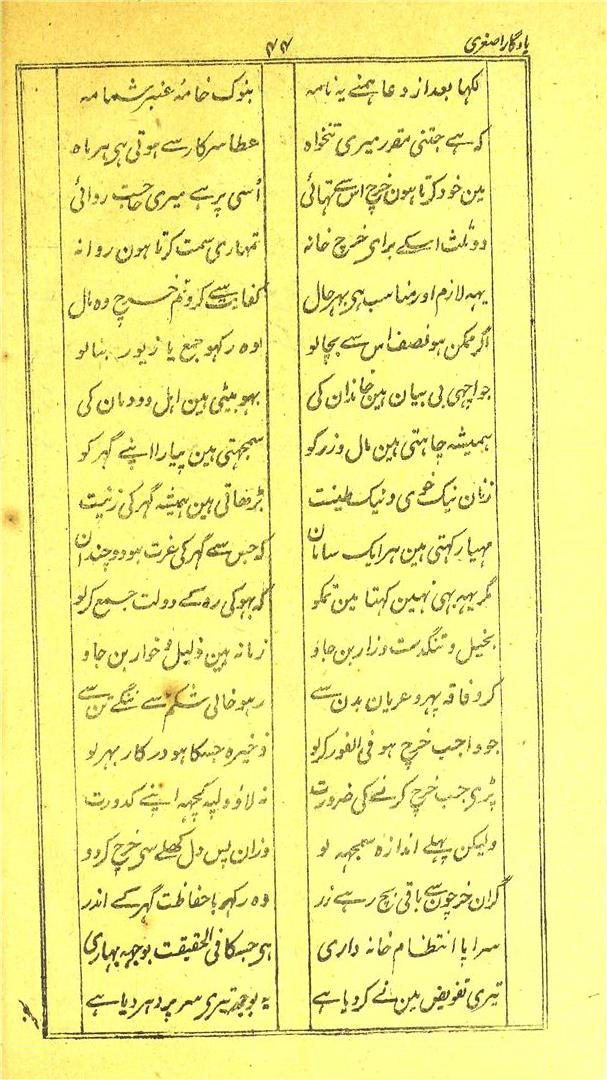 یادگار اصغری
۴۴
لکہا بعد از دعا ہمنے یہ نامہ بنوک خامۂ عنبر شمامہ
کہ ہے جتنی مقرر میری تنخواہ عطا سرکار سے ہوتی ہی ہر ماہ
مین خود کرتا ہون خرچ اس سے تہائی اُسی پر ہے میری حاجت روائی
دو ثلث اسکے برای خرچ خانہ تمہاری سمت کرتا ہون روانہ
یہہ لازم اور مناسب ہی بہر حال کفایت سے کرو تم خرچ وہ مال
اگر ممکن ہو نصف اس سے بچا لو اوہ رکہو جمع یا زیور بنا لو
جو اچہی بی بیان ہین خاندان کی بہو بیٹی ہین اہل دودمان کی
ہمیشہ چاہتی ہین مال و زر کو سمجہتی ہین پیارا اپنے گہر کو
زنان نیک خوی و نیک طینت بڑہاتی ہین ہمیشہ گہر کی زینت
مہیا رکہتی ہین ہر ایک سامان کہ جس سے گہر کی عزت ہو دو چندان
مگر یہہ بہی نہین کہتا مین تمکو کہ بہوکی رہ کے دولت جمع کر لو
بخیل و تنگدست و زار بن جاو زمانہ مین ذلیل و خوار بن جاو
کرو فاقہ پہرو عریان بدن سے رہو خالی شکم سے ننگے تن سے
جو واجب خرچ ہو فی الفور کر لو ذخیرہ جسکا ہو درکار بہر لو
پڑہی جب خرچ کرنے کی ضرورت نہ لاؤ دلپہ کچہہ اپنے کدورت
ولیکن پہلے اندازہ سمجہہ لو وزان پس دل کہلے سی خرچ کر دو
گر ان خرچون سے باقی بچ رہے زر وہ رکہو باحفاظت گہر کے اندر
سراپا انتظام خانہ داری ہی جسکا فی الحقیقت بوجہہ بہاری
تیری تفویض مین نے کر دیا ہے یہ بوجہہ تیری سر پر دہر دیا ہے